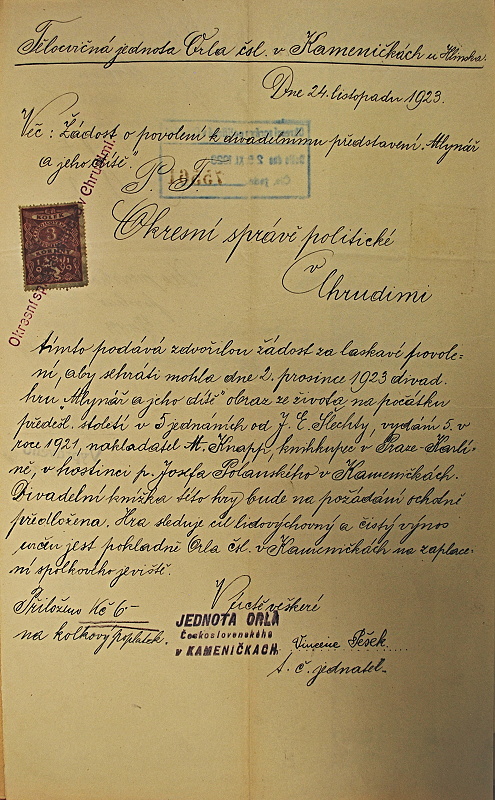 Tělocvičná jednota Orla čsl. v Kameničkách u Hlinska.
Dne 24. listopadu 1923.
Věc: Žádost o povolení k divadelnímu představení "Mlynář
a jeho dítě"
P. T.
Okresní správě politické
v
Chrudimi
tímto podává zdvořilou žádost za laskavé povole-
ní, aby sehráti mohla dne 2. prosince 1923 divad.
hru "Mlynář a jeho dítě" obraz ze života na počátku
předešl. století v 5 jednáních od J. E. Šlechty, vydání 5. v
roce 1921, nakladatel M. Knapp, knihkupec v Praze-Karlí-
ně, v hostinci p. Josefa Polanského v Kameničkách.
Divadelní knížka této hry bude na požádání ochotně
předložena. Hra sleduje cíl lidovýchovný a čistý výnos
určen jest pokladně Orla čsl. v Kameničkách na zaplace-
ní spolkového jeviště.
V úctě veškeré
Přiloženo Kč 6-
na kolkový poplatek.
JEDNOTA ORLA
Československého
v KAMENIČKÁCH
Vincenc Pešek
t. č. jednatel.
Okresní sp
v Chrudimi.
KOLEK
3